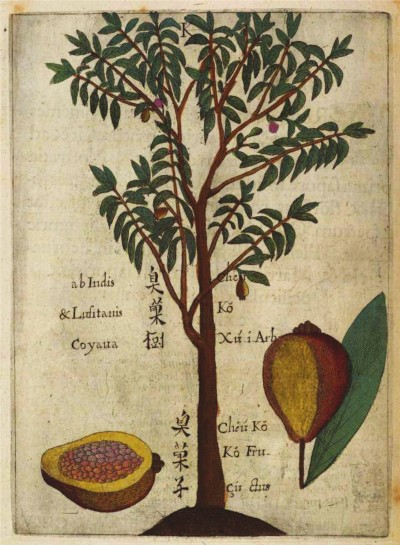 K
ab Indis
& Lusitanis
Coyaua
臭菓樹
Cheú
Kò
Xú i Arb
臭菓子
Chéú Kò
Kò Fru-
çú ctus